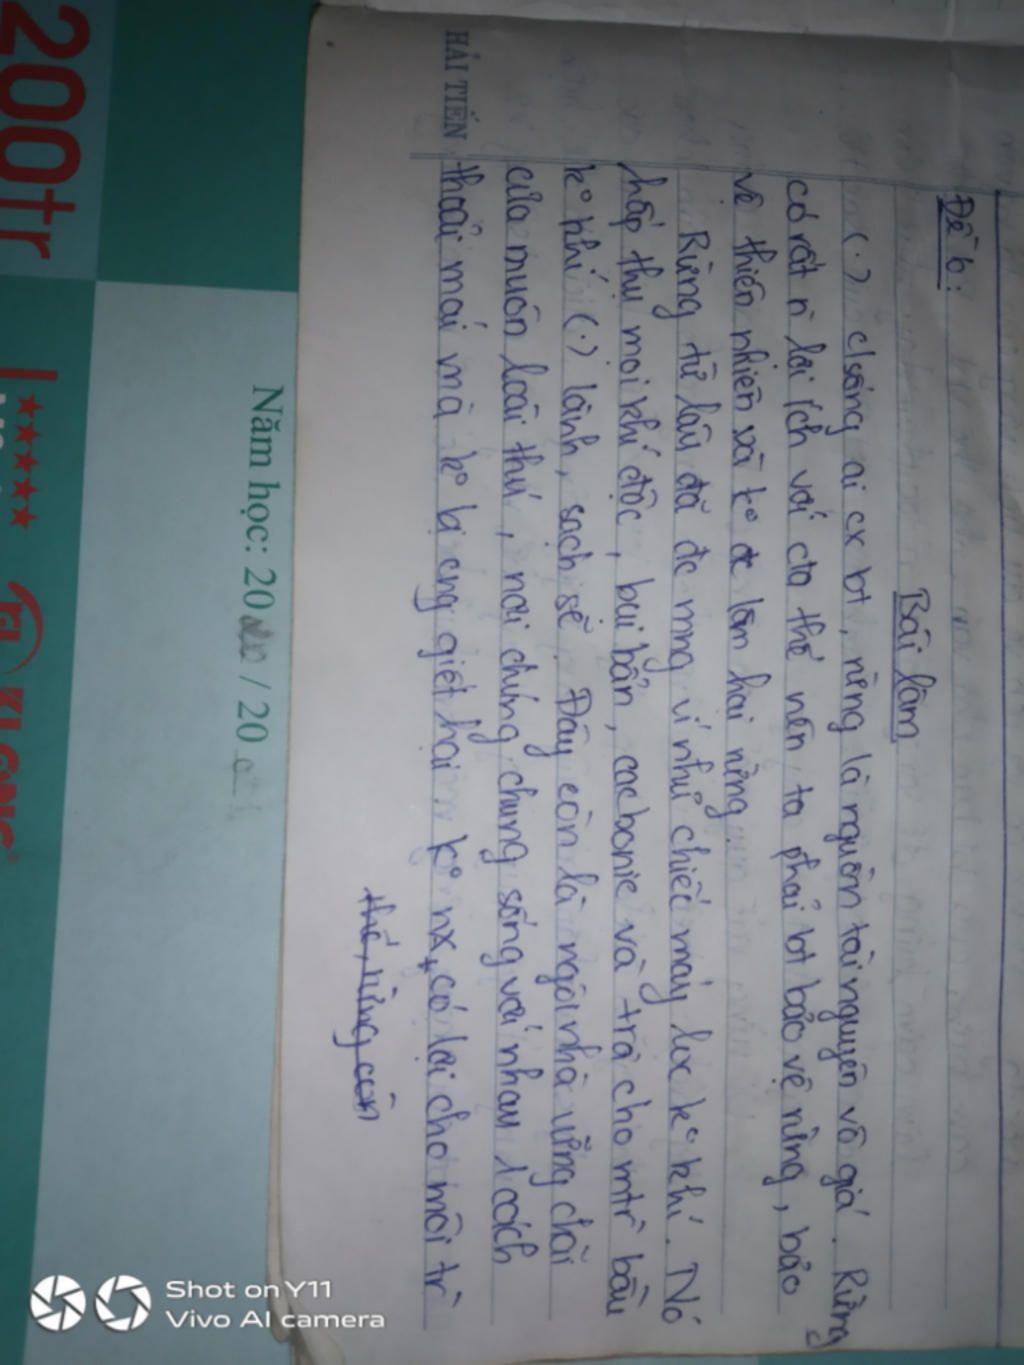 Đề 6:
Bài làm
(.) c/sống ai cx bt, rừng là nguồn tài nguyên vô giá. Rừng
có rất n lợi ích với cta thế nên ta phải bt bảo vệ rừng, bảo
vệ thiên nhiên và kº đc làm hại rừng.
Rừng từ lâu đã đc mng ví như chiếc máy lọc kº khí. Nó
hấp thụ mọi khí độc, bụi bẩn, cacbonic và trả cho mtr` bầu
kº khí (.) lành, sạch sẽ. Đây còn là ngôi nhà vững chãi
của muôn loài thú, nơi chúng chung sống với nhau 1 cách
thoải mái mà kº bị cng giết hại. kº nx, có lợi cho môi tr`
thế, rừng còn
HẢI TIẾN
Năm học: 20 / 20
200tr
KLONG
Shot on Y11
Vivo AI camera